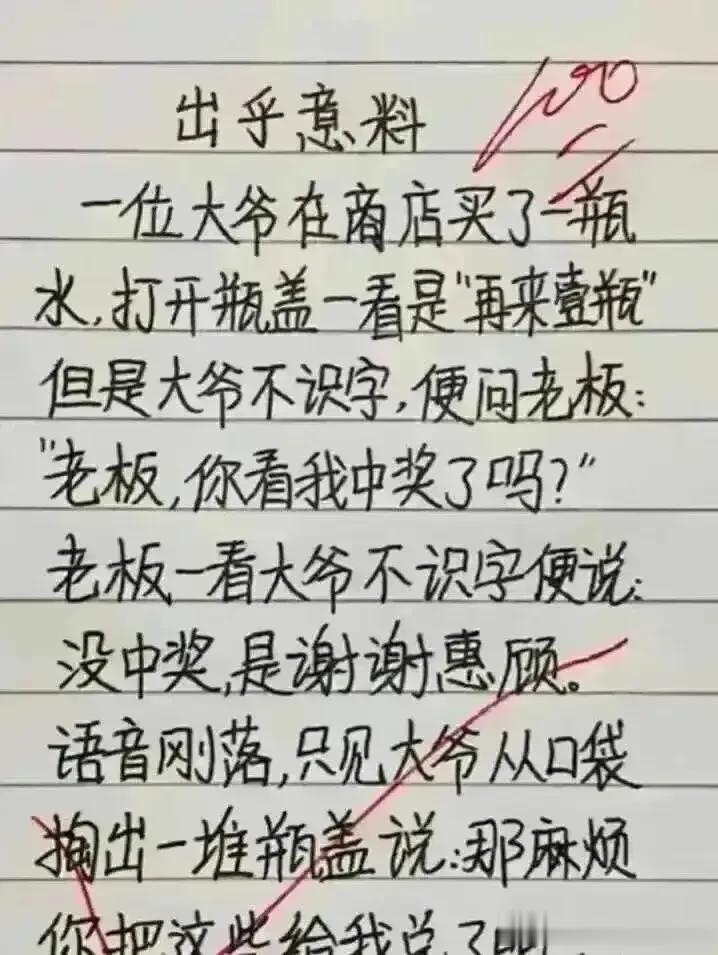 出乎意料
100
一位大爷在商店买了一瓶
水,打开瓶盖一看是"再来壹瓶"
但是大爷不识字,便问老板:
"老板,你看我中奖了吗?"
老板一看大爷不识字便说:
没中奖,是谢谢惠顾。
语音刚落,只见大爷从口袋
掏出一堆瓶盖说:那麻烦
你把这些给我兑了吧